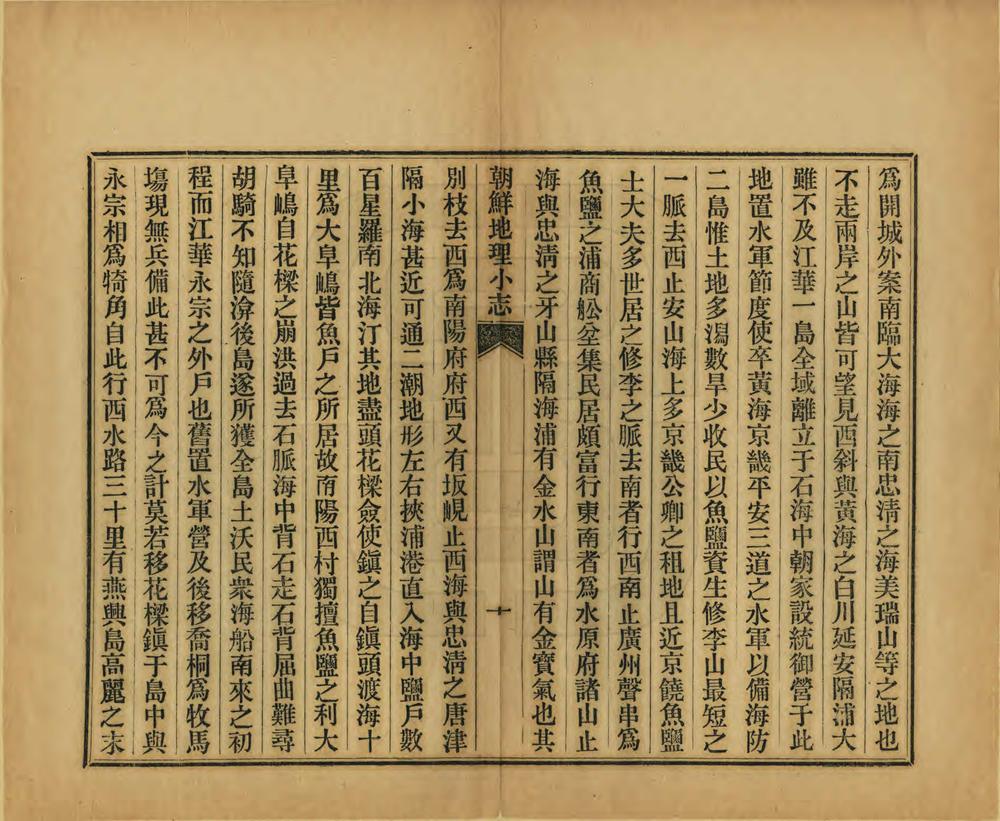 爲開城外案南臨大海海之南忠淸之海美瑞山等之地也
不走兩岸之山皆可望見西斜與黃海之白川延安隔浦大
雖不及江華一島全域離立于石海中朝家設統御營于此
地置水軍節度使卒黃海京畿平安三道之水軍以備海防
二島惟土地多潟數旱少收民以魚鹽資生修李山最短之
一脈去西止安山海上多京畿公卿之租地且近京饒魚鹽
士大夫多世居之修李之脈去南者行西南止廣州聲串爲
魚鹽之浦商舩坌集民居頗富行東南者爲水原府諸山止
海與忠淸之牙山縣隔海浦有金水山謂山有金寶氣也其
朝鮮地理小志
十
別枝去西爲南陽府府西又有坂峴止西海與忠淸之唐津
隔小海甚近可通二潮地形左右挾浦港直入海中鹽戶數
百星羅南北海汀其地盡頭花樑僉使鎭之自鎭頭渡海十
里爲大阜嶋皆魚戶之所居故南陽西村獨擅魚鹽之利大
阜嶋自花樑之崩洪過去石脈海中背石走石背屈曲難尋
胡騎不知隨渰後島遂所獲全島土沃民衆海船南來之初
程而江華永宗之外戶也舊置水軍營及後移喬桐爲牧馬
塲現無兵備此甚不可爲今之計莫若移花樑鎭于島中與
永宗相爲犄角自此行西水路三十里有燕興島高麗之末